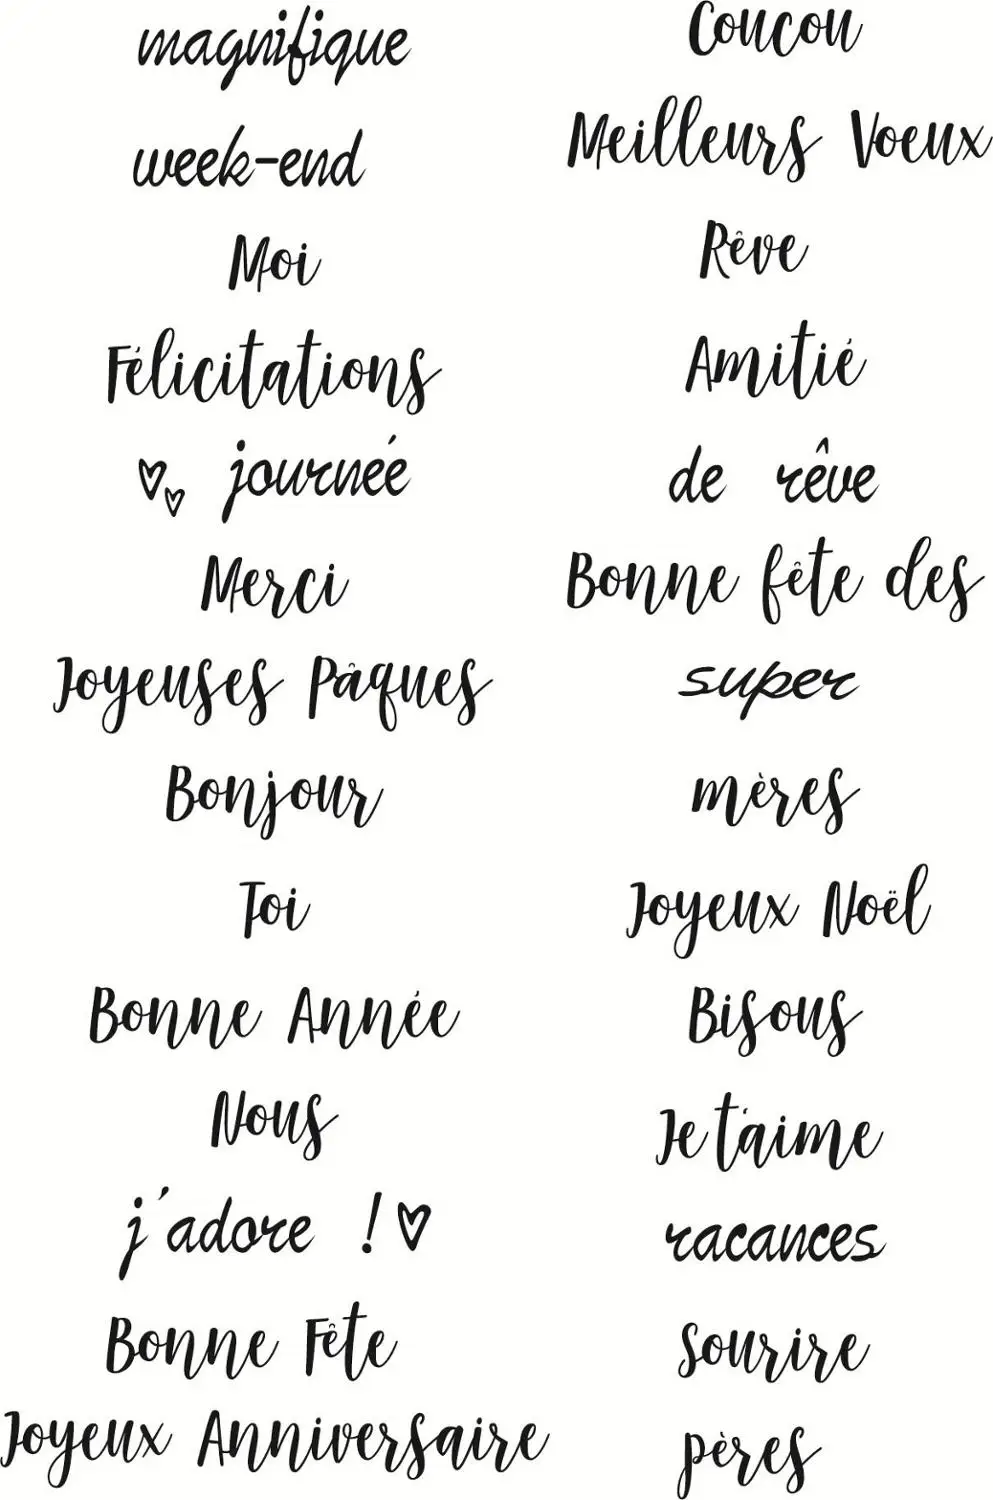 magnifique
week-end
Moi
Félicitations
journée
Merci
Joyeuses Pâques
Bonjour
Toi
Bonne Année
Nous
j'adore !
Bonne Fête
Joyeux Anniversaire
Coucou
Meilleurs Voeux
Rêve
Amitié
de rêve
Bonne fête des
super
mères
Joyeux Noël
Bisous
Je t'aime
racances
sourire
pères